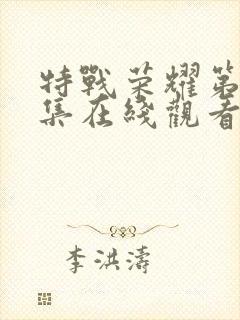 特戰荣耀第
集在綫觀看
李洪濤